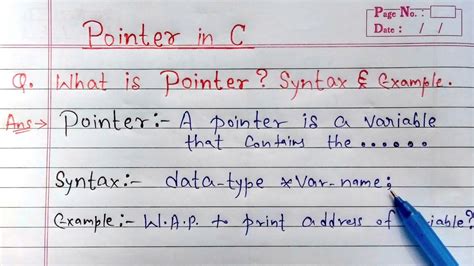 Page No. :
Date : / /
Pointer in C
Q. What is Pointer? Syntax & Example.
Ans → Pointer:- A pointer is a variable
that contains the ......
Syntax:- data-type *var-name;
Example:- W.A.P. to print address of